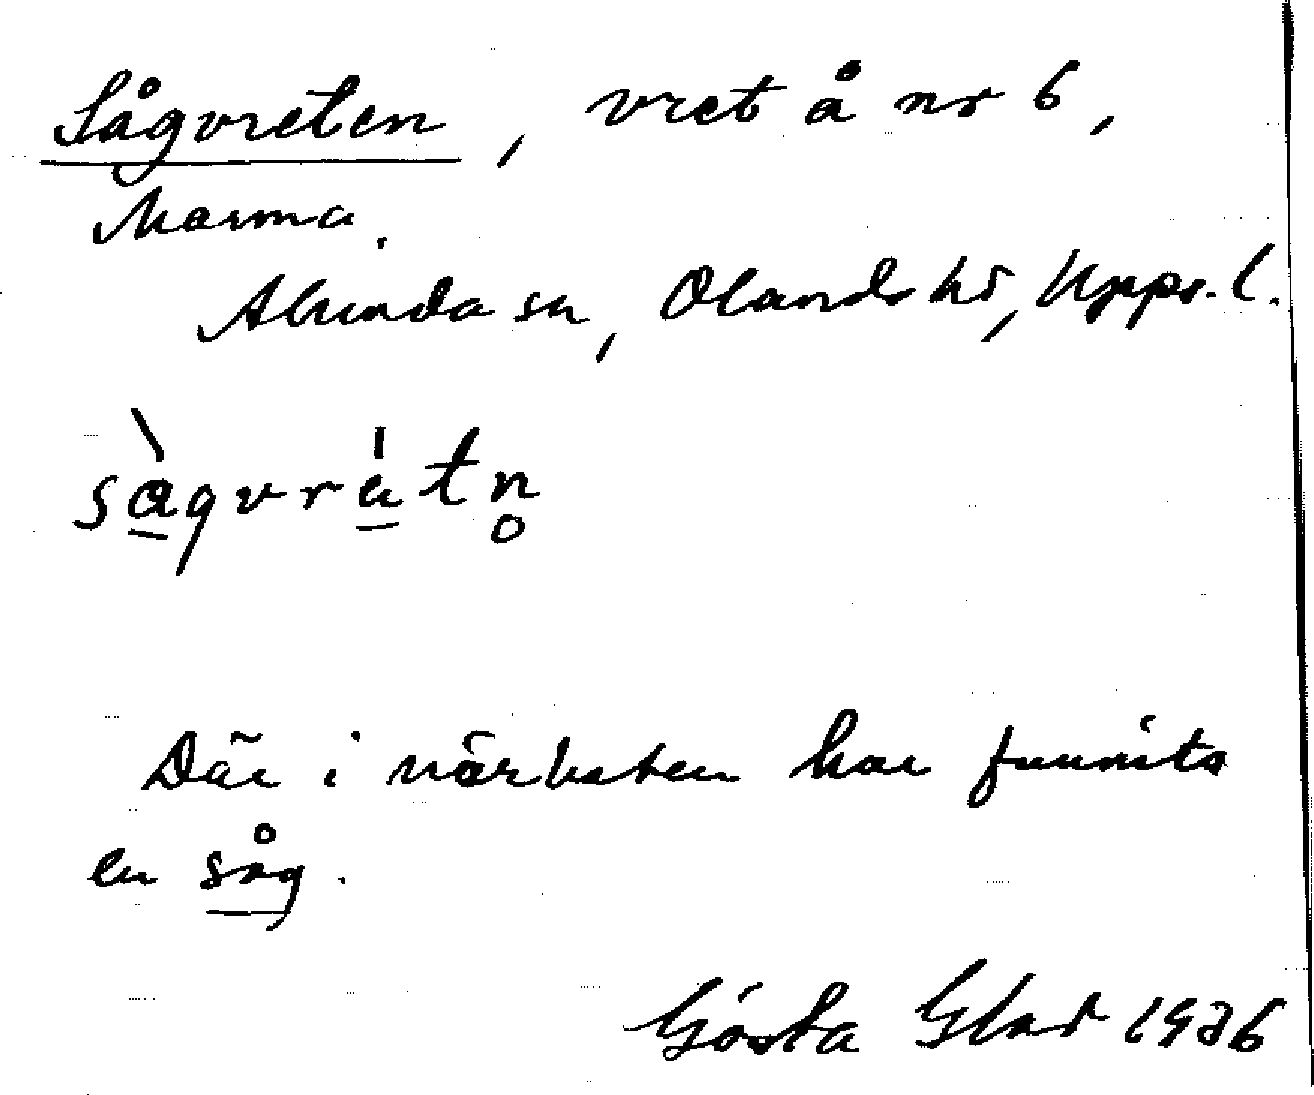 Sågvreten, vret å nr 6,
Marma.
Alunda sn, Olands hd, Upps. l.
sàgvrátn̥
Där i närheten har funnits
en såg.
Gösta 1936